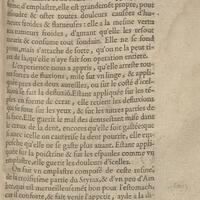 me, d'emplastre, elle est grandemēt propre, pour
soudre & oster toutes douleurs causees d'hu-
meurs froides & flatueuses: elle a la mesme vertu
es tumeurs froides, d'autant qu'elle les resout
meurit & consume tout soudain. Elle ne se fond
mais s'attache de sorte, qu'on ne la peut ti-
r de là qu'elle n'aye fait son operation entiere.
L'experience nous a appris, qu'elle arreste tou-
tes sortes de fluxions, mise sur vn linge, & appli-
quée pres des deux aureilles, ou sur le costé d'icel-
les où se fait la defluxiō. Estant appliquée sur les tē-
ples en forme de cerat, elle retient les defluxions
qui se font sur les yeux, & sur les autres parties de
la face. Elle guerit le mal des dents estant mise dans
le creux de la dent, encores qu'elle soit gastée: que
si auec icelle on cauterise la dent pourrie, elle em-
pesche qu'elle ne se gaste plus auant. Estant appli-
quée sur la poictrine & sur les espaules comme vn
emplastre, elle guerit les douleurs d'icelles.
On fait vn emplastre composé de ceste resine,
de la troisiesme partie du Styrax, & d'vn peu d'Am-
bre, qui est merueilleusemēt bon pour l'estomach,
car il conforte, & fait venir l'appetit, ayde à la di-